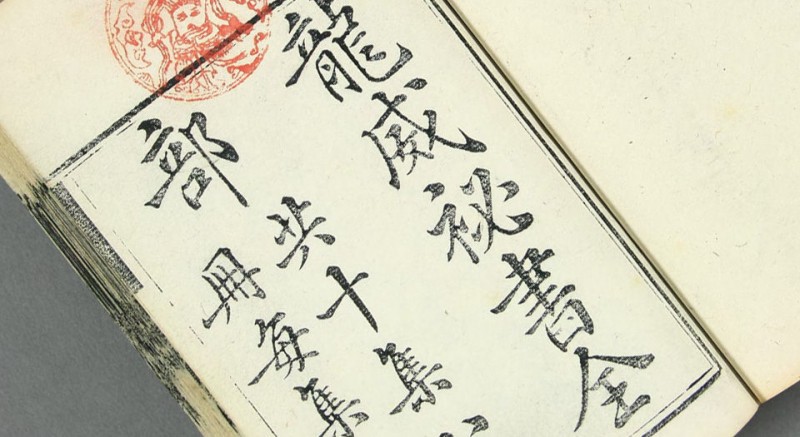 龍威祕書全
部
共十集
冊每集